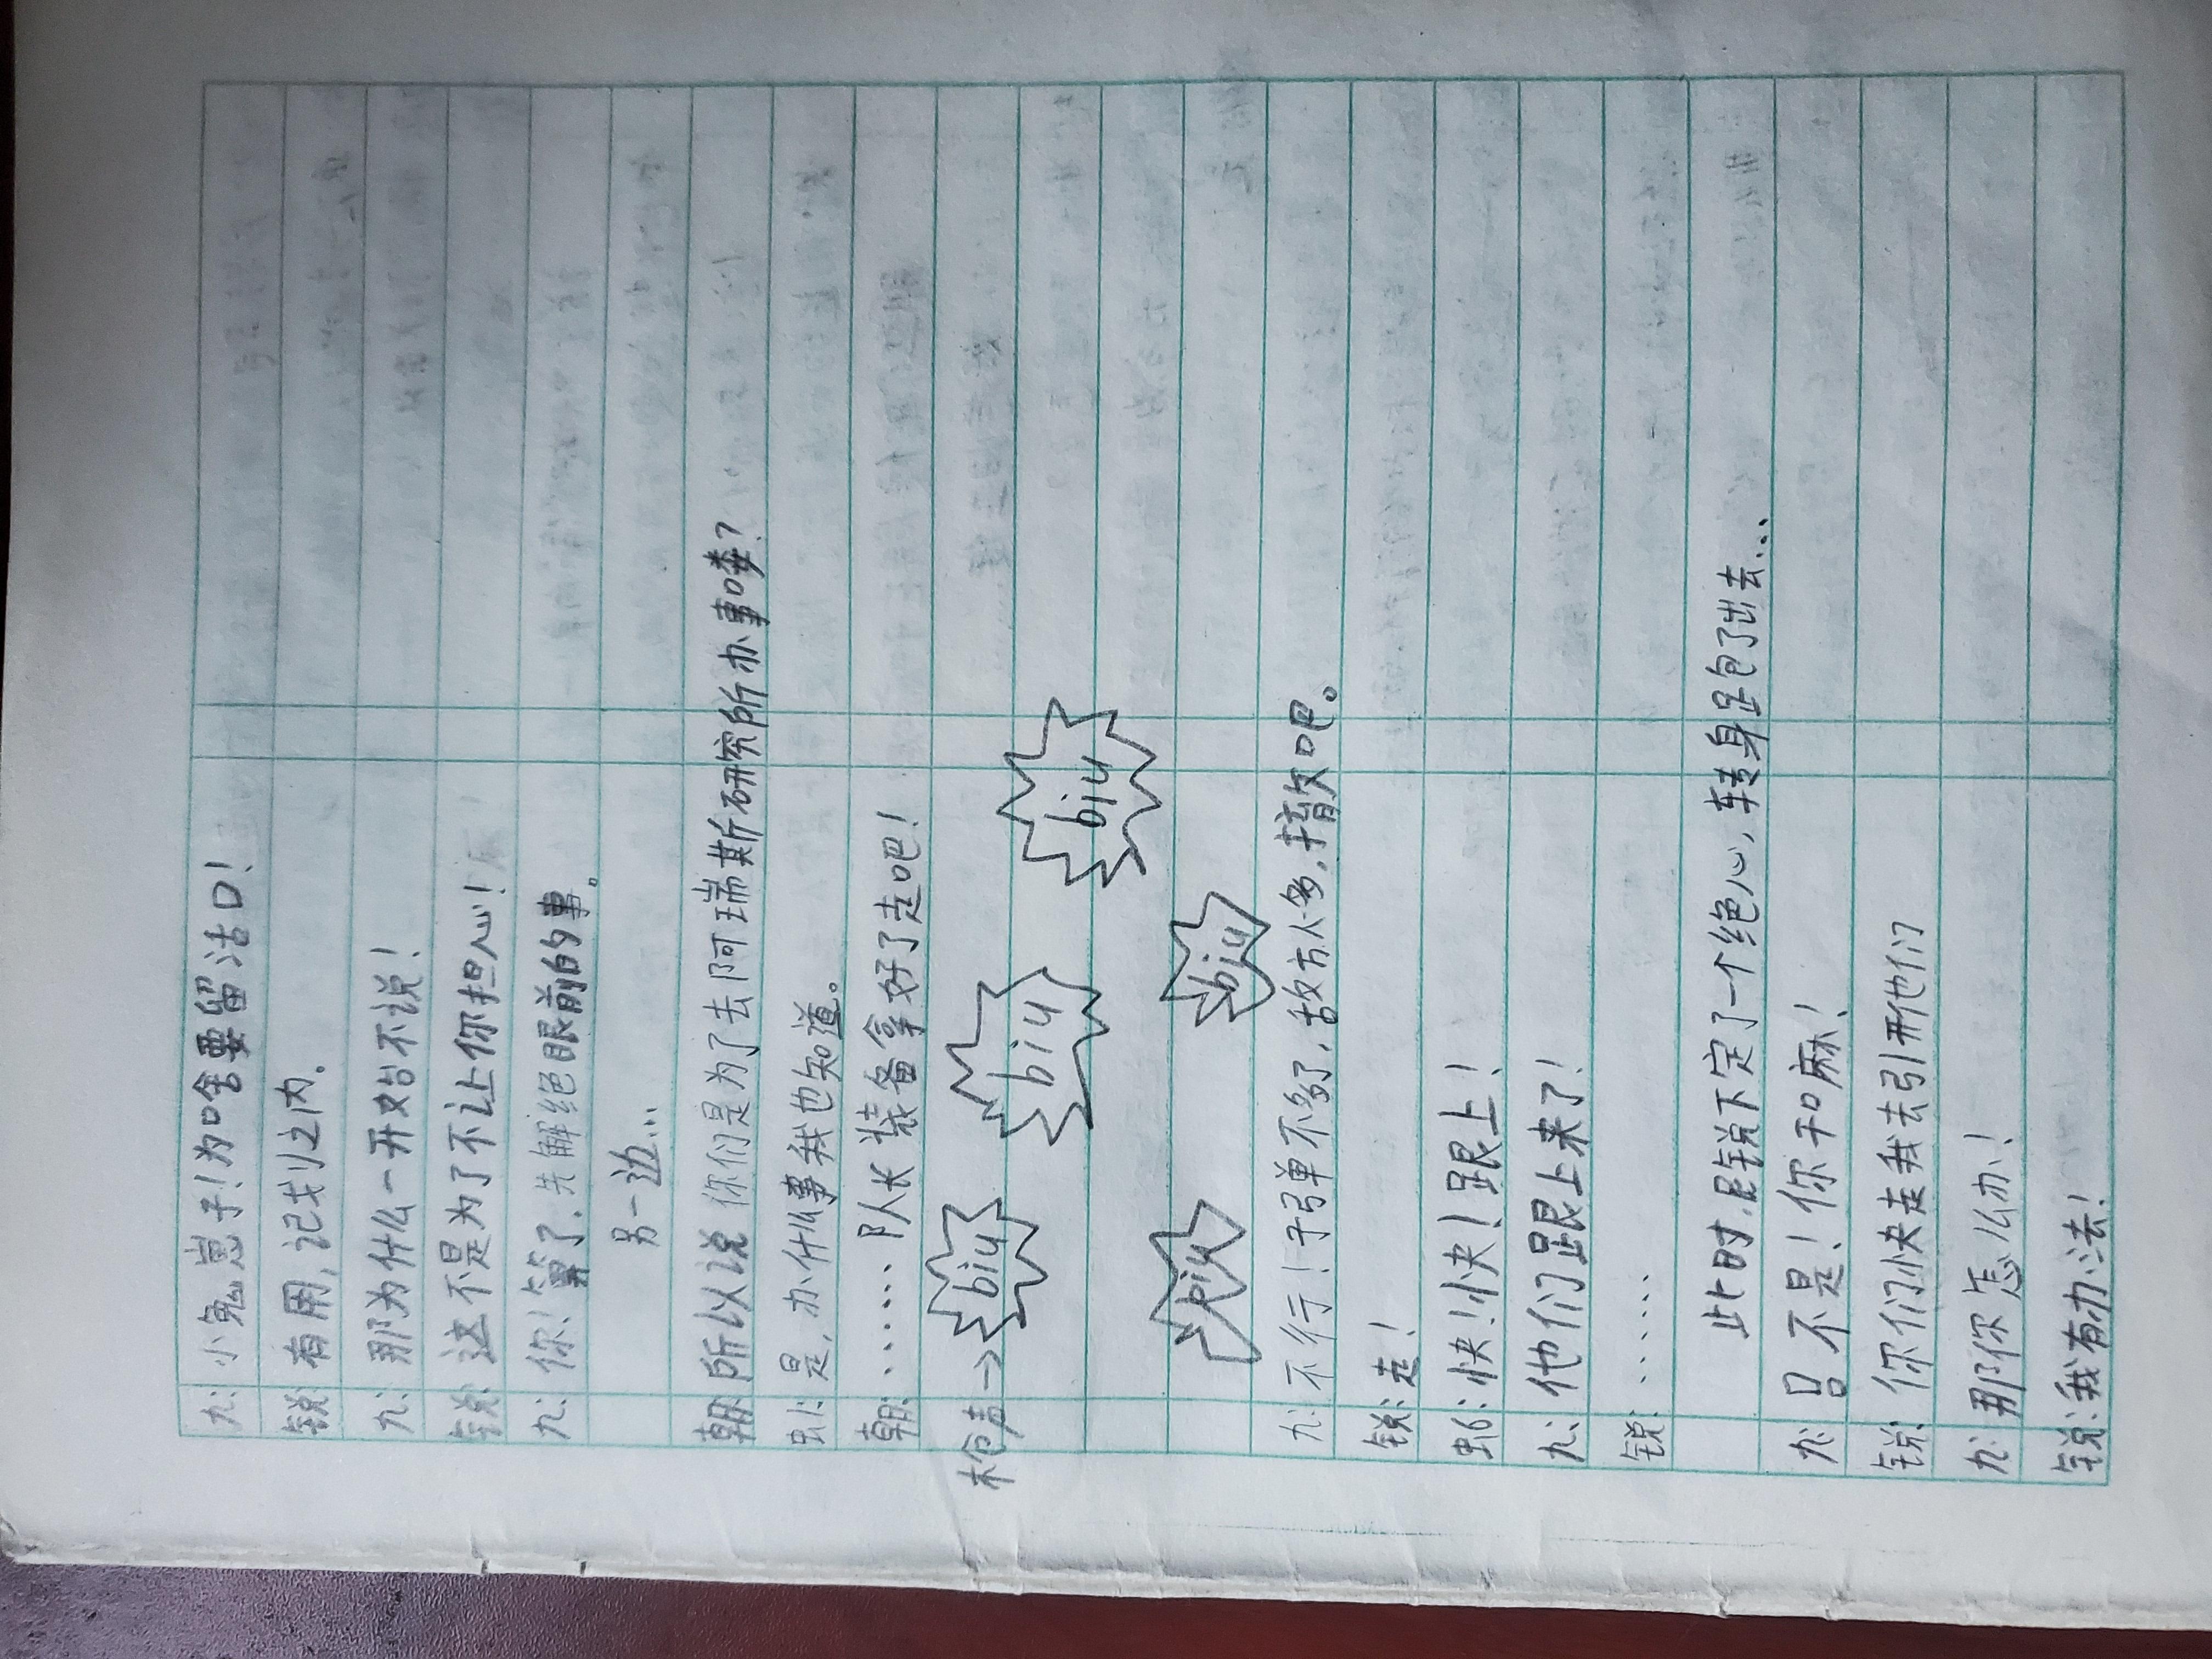 九:小兔崽子!为啥要留活口!
锐:有用,记划之内。
九:那为什么一开始不说!
锐:这不是为了不让你担心!
九:你!算了.先解绝眼前的事。
另一边...
朝:所以说 你们是为了去阿瑞斯研究所办事喽?
虫1:是,办什么事我也知道。
朝:...... 队长装备拿好了走吧!
枪声→ biu biu biu
biu biu
九:不行!子弹不多了,敌方人多,撤吧。
锐:走!
虫6:快!快!跟上!
九:他们跟上来了!
锐:......
此时,锐下定了一个绝心,转身跑了出去...
九:不是!你干嘛!
锐:你们快走我去引开他们
九:那你怎么办!
锐:我有办法!